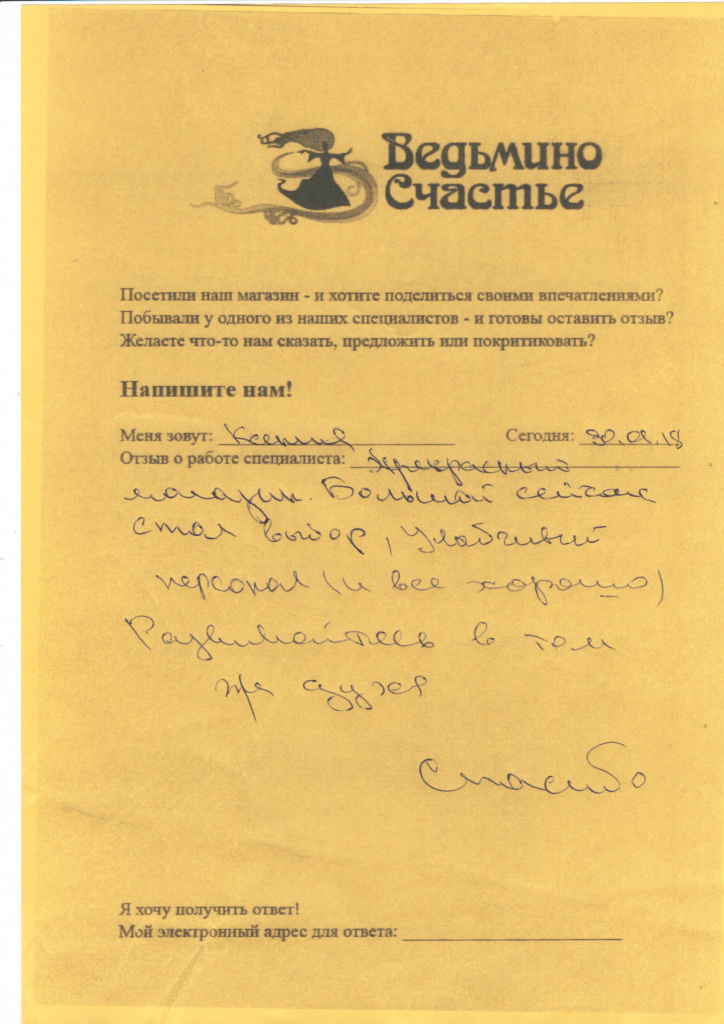 Ведьмино
Счастье
Посетили наш магазин - и хотите поделиться своими впечатлениями?
Побывали у одного из наших специалистов - и готовы оставить отзыв?
Желаете что-то нам сказать, предложить или покритиковать?
Напишите нам!
Меня зовут: Ксения Сегодня: 30.01.18
Отзыв о работе специалиста: Прекрасный
магазин. Большой сейчас
стал выбор, улыбчивый
персонал (и все хорошо)
Развивайтесь в том
же духе
Спасибо
Я хочу получить ответ!
Мой электронный адрес для ответа: